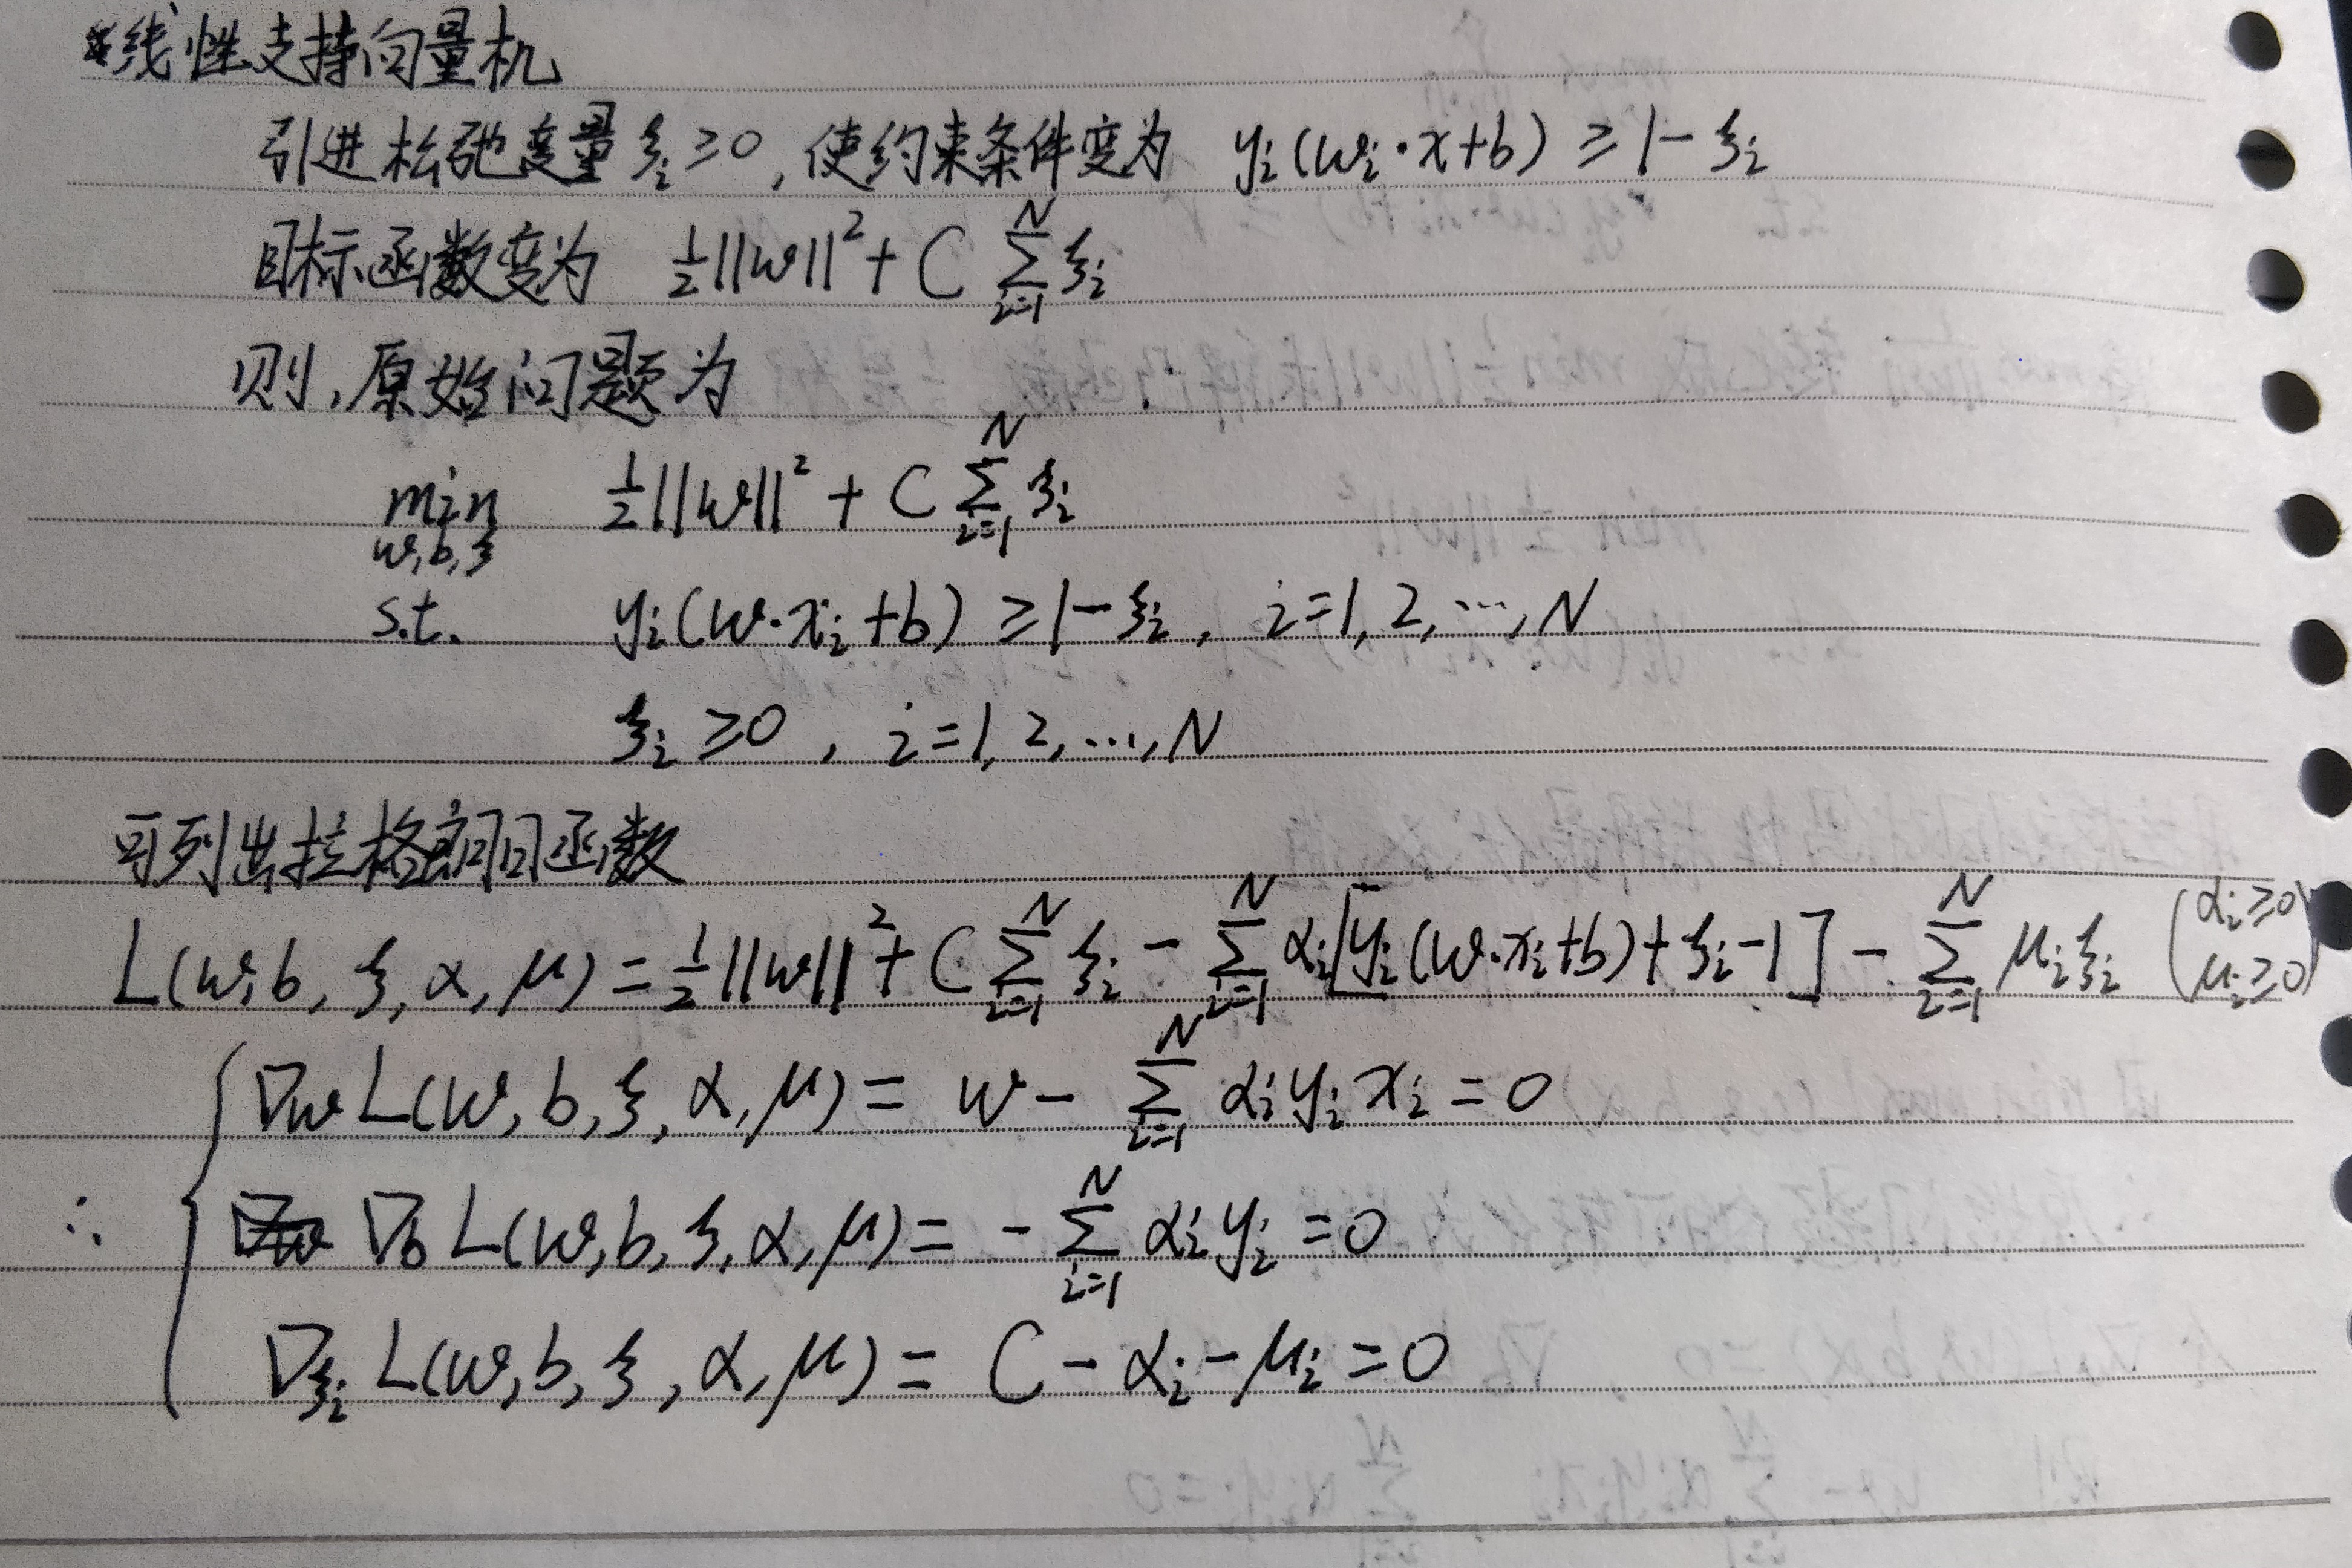 线性支持向量机
引进松弛变量 ξᵢ ≥ 0 , 使约束条件变为 yᵢ(wᵢ·x+b) ≥ 1-ξᵢ
目标函数变为 ½||w||² + C Σᵢ₌₁ᴺ ξᵢ
则,原始问题为
min ½||w||² + C Σᵢ₌₁ᴺ ξᵢ
w,b,ξ
s.t. yᵢ(w·xᵢ+b) ≥ 1-ξᵢ , i=1,2,…,N
ξᵢ ≥ 0 , i=1,2,…,N
可列出拉格朗日函数
L(w,b,ξ,α,μ) = ½||w||² + C Σᵢ₌₁ᴺ ξᵢ - Σᵢ₌₁ᴺ αᵢ[yᵢ(w·xᵢ+b)+ξᵢ-1] - Σᵢ₌₁ᴺ μᵢξᵢ (αᵢ≥0 μᵢ≥0)
∇w L(w,b,ξ,α,μ) = w - Σᵢ₌₁ᴺ αᵢyᵢxᵢ = 0
∴ { ∇b L(w,b,ξ,α,μ) = - Σᵢ₌₁ᴺ αᵢyᵢ = 0
∇ξᵢ L(w,b,ξ,α,μ) = C - αᵢ - μᵢ = 0